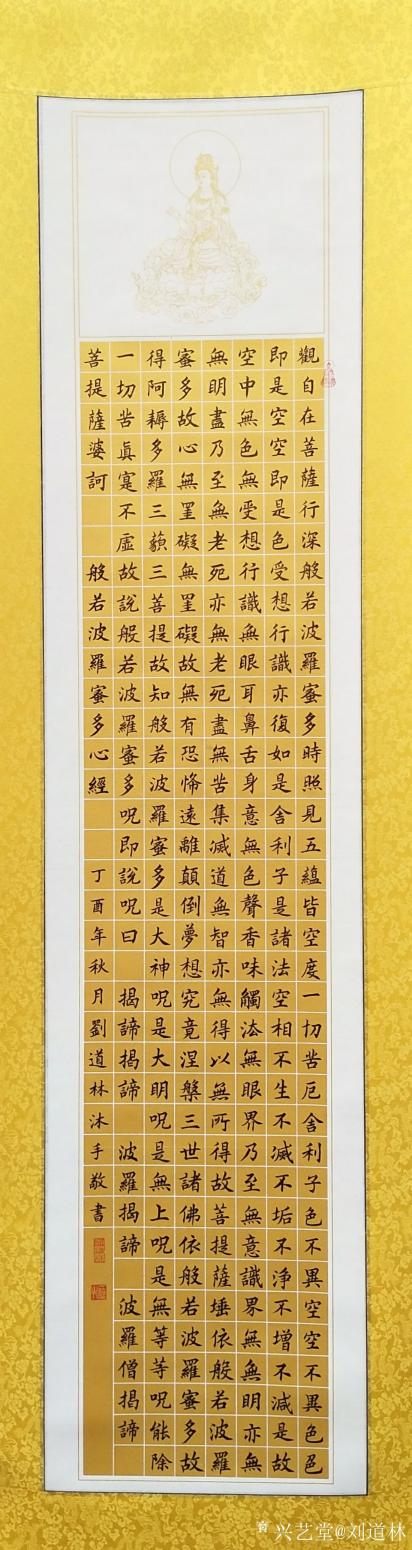 觀自在菩薩行深般若波羅蜜多時照見五蘊皆空度一切苦厄舍利子色不異空空不異色色
即是空空即是色受想行識亦復如是舍利子是諸法空相不生不滅不垢不淨不增不減是故
空中無色無受想行識無眼耳鼻舌身意無色聲香味觸法無眼界乃至無意識界無無明亦無
無明盡乃至無老死亦無老死盡無苦集滅道無智亦無得以無所得故菩提薩埵依般若波羅
蜜多故心無罣礙無罣礙故無有恐怖遠離顛倒夢想究竟涅槃三世諸佛依般若波羅蜜多故
得阿耨多羅三藐三菩提故知般若波羅蜜多是大神呪是大明呪是無上呪是無等等呪能除
一切苦眞寔不虛故說般若波羅蜜多呪即說呪曰 揭諦揭諦 波羅揭諦 波羅僧揭諦
菩提薩婆訶 般若波羅蜜多心經 丁酉年秋月劉道林沐手敬書
兴艺堂@刘道林